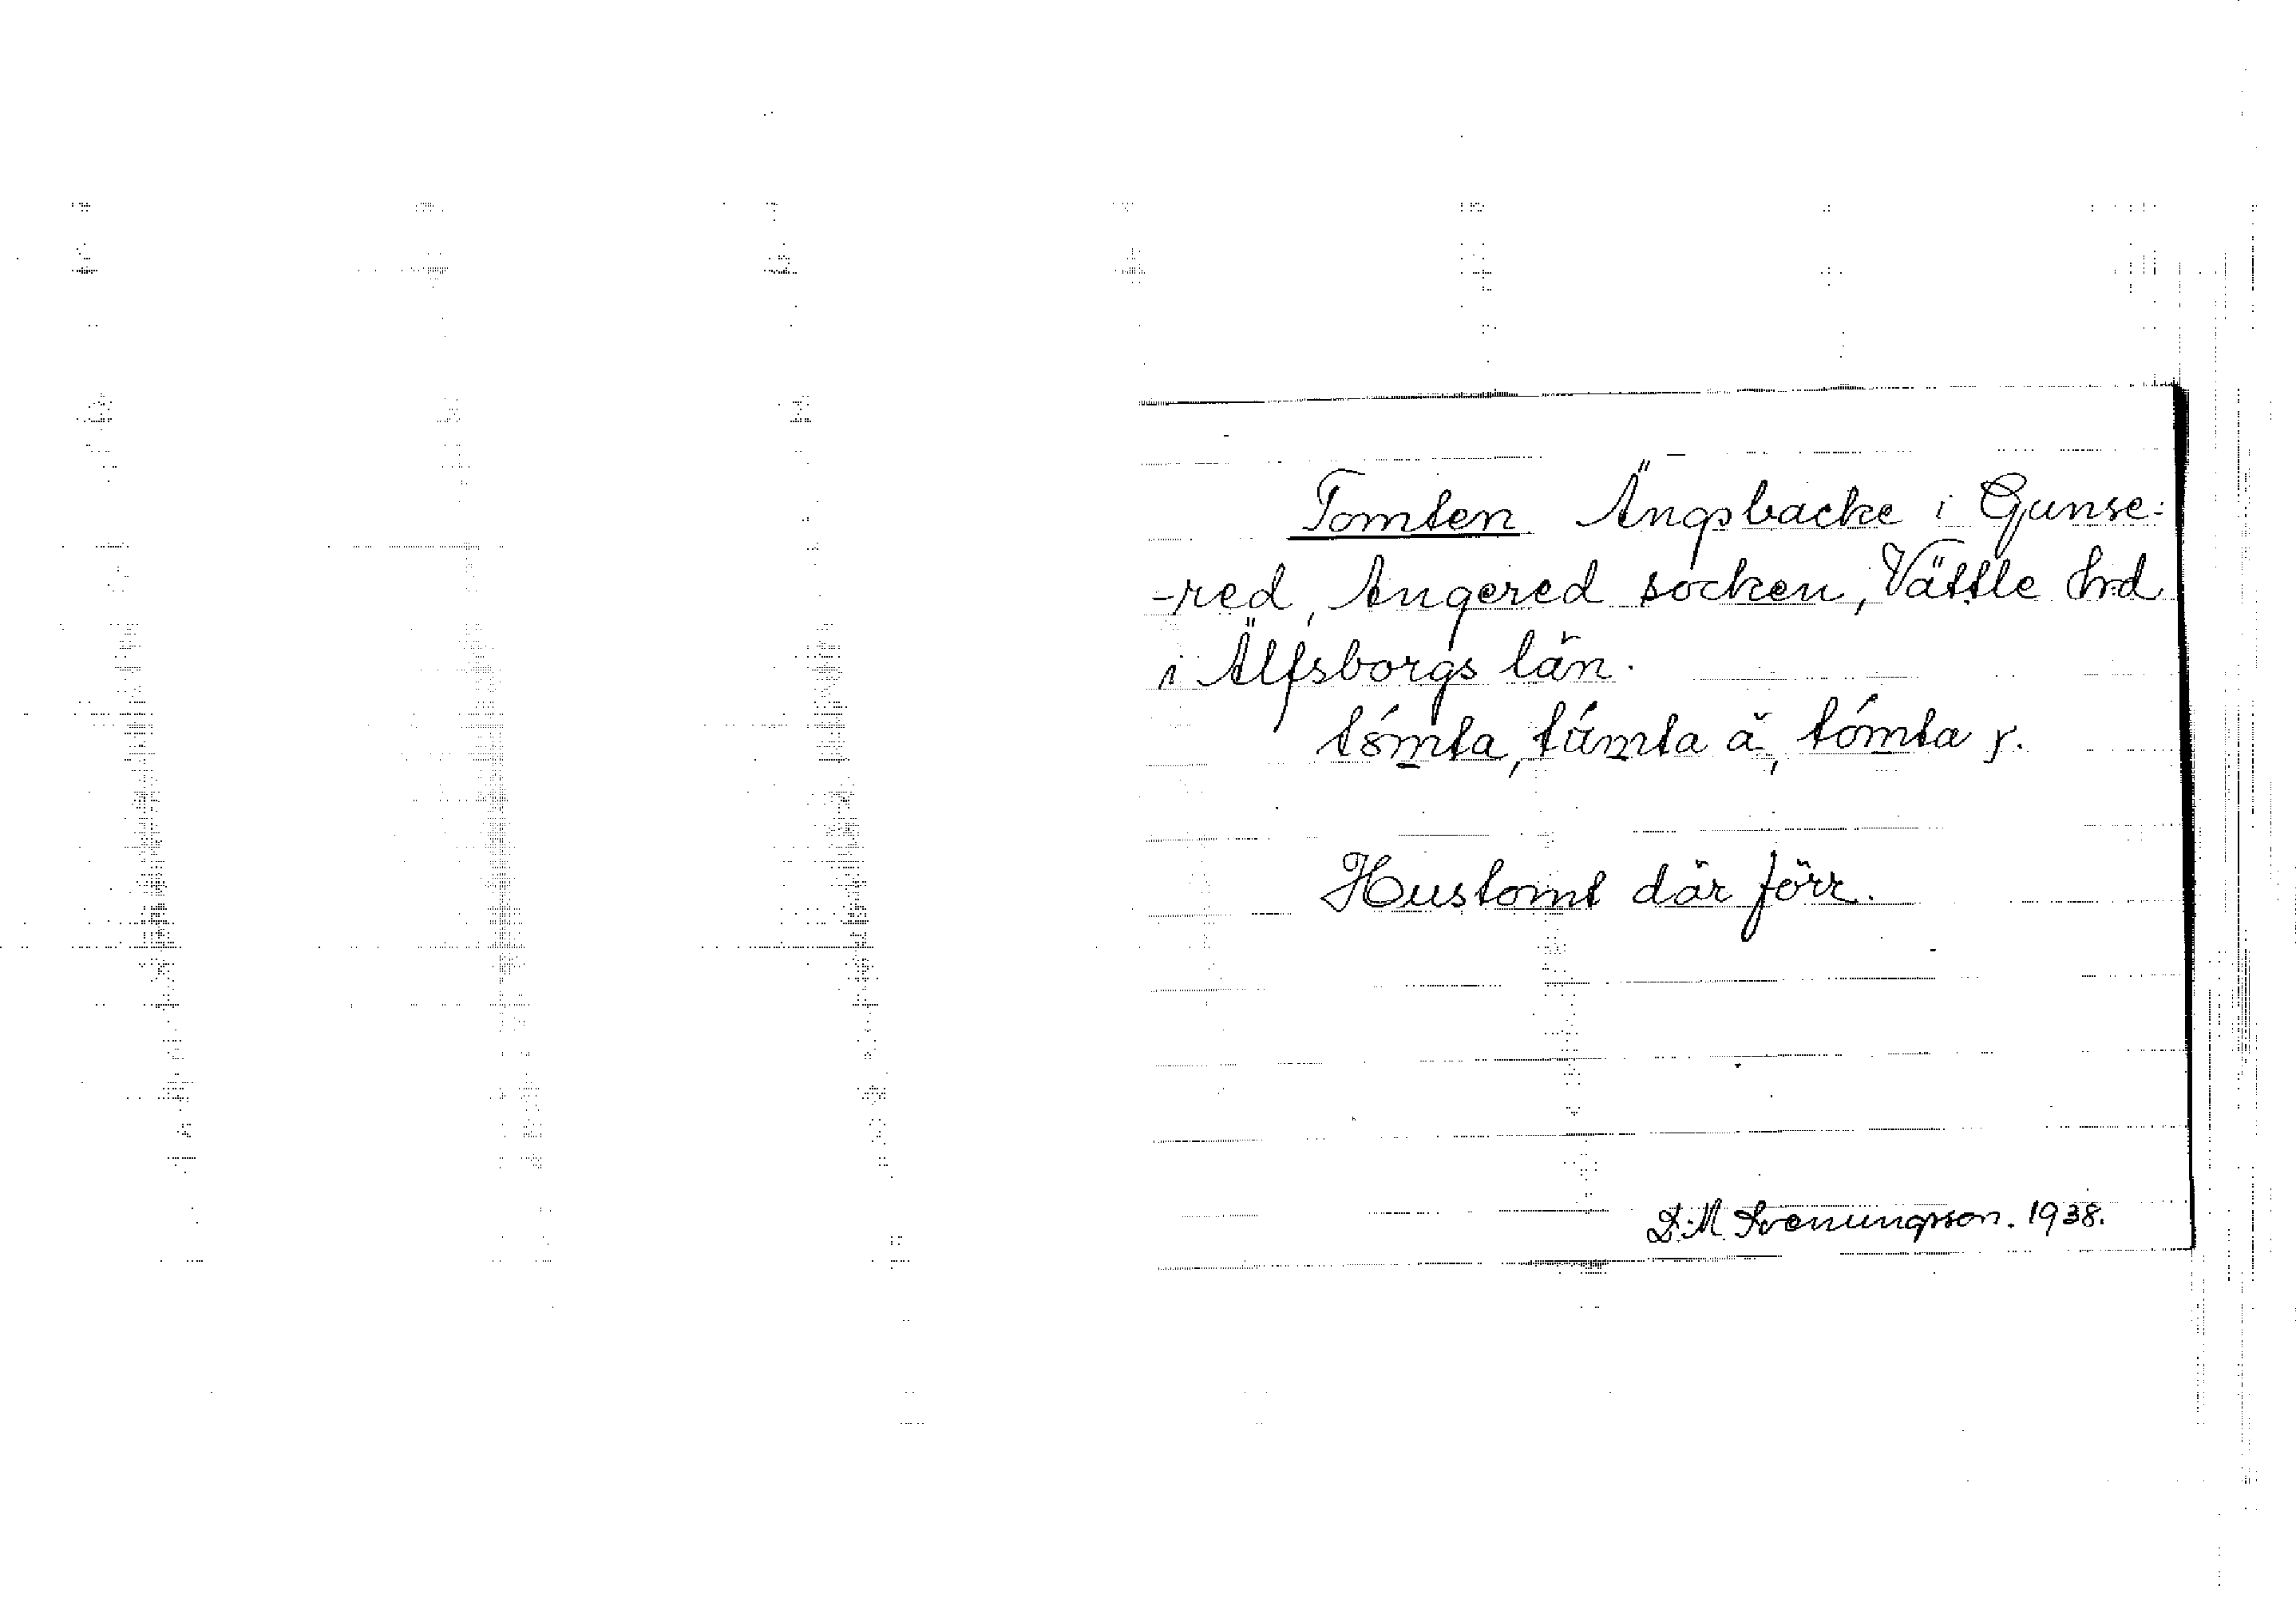 Tomten Ängsbacke i Gunse-
-red, Angered socken, Vättle hrd
i Älfsborgs län.
tómta, túmta ä, tómta y.
Hustomt där förr.
D.M Svenungsson. 1938.